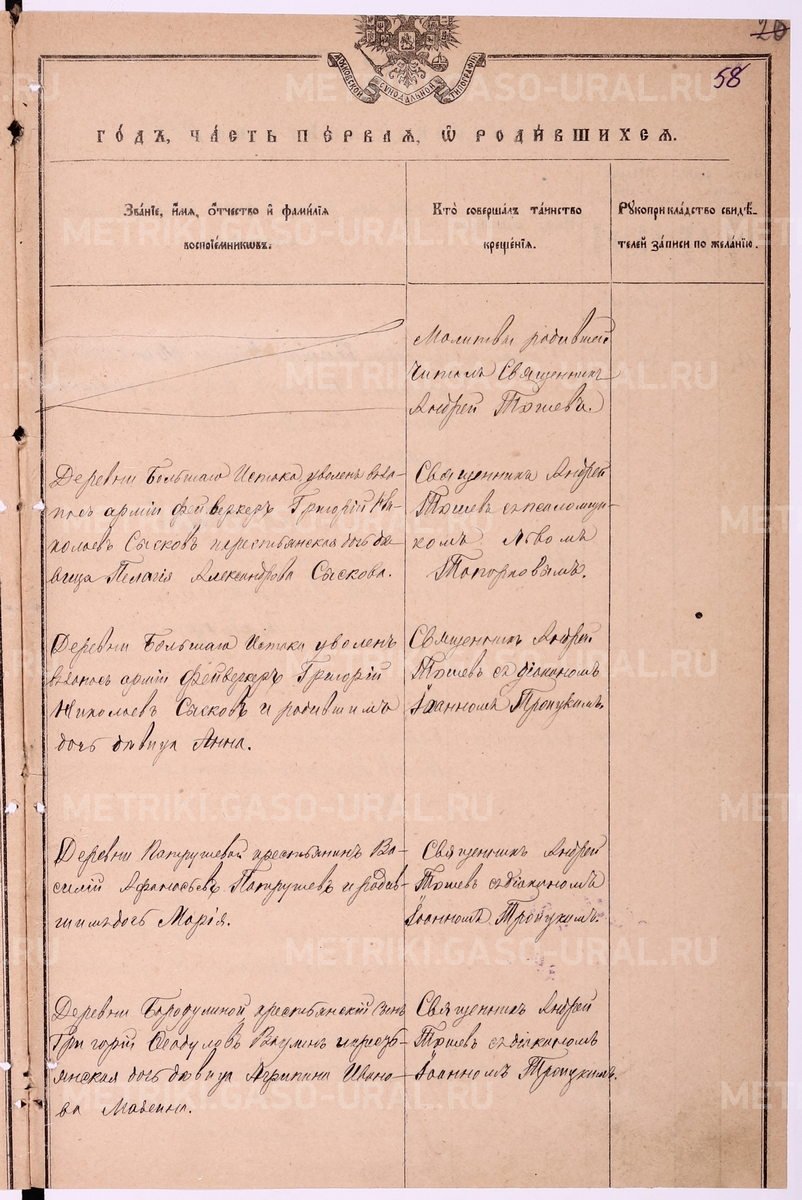 20
58
МОСКОВСКОЙ СѴНОДАЛЬНОЙ ТИПОГРАФІИ
ГО́ДЪ, ЧА́СТЬ ПЕ́РВАЯ, Ѽ РОДИ́ВШИХСЯ.
Зва́нїе, и҆́мѧ, ѻ҆́тчество и҆ фами́лїѧ
воспрїе́мникѡвъ.
Кто̀ соверша́лъ та́инство
креще́нїѧ.
Рꙋкоприкла́дство свидѣ́-
телей за́писи по жела́нїю.
Молитвы родившей
читалъ Священникъ
Андрей Тюшевъ.
Деревни Большаго Истока уволенъ въ за-
пасъ арміи фейверкеръ Григорій Ни-
колаевъ Сысковъ и крестьянская дочь дѣ-
вица Пелагія Александрова Сыскова.
Священникъ Андрей
Тюшевъ съ псаломщи-
комъ Львомъ
Топорковымъ.
Деревни Большаго Истока уволенъ
въ запасъ арміи фейверкеръ Григорій
Николаевъ Сысковъ и родившимъ
дочь дѣвица Анна.
Священникъ Андрей
Тюшевъ съ діакономъ
Іоанномъ Троицкимъ.
Деревни Патрушевой крестьянинъ Ва-
силій Афанасьевъ Патрушевъ и родив-
шимъ дочь Марія.
Священникъ Андрей
Тюшевъ съ діакономъ
Іоанномъ Троицкимъ.
Деревни Бородулиной крестьянскій сынъ
Григорій Ѳеодуловъ и крестъ-
янская дочь дѣвица Агрипина Ивано-
ва
Священникъ Андрей
Тюшевъ съ діакономъ
Іоанномъ Троицкимъ.
METRIKI.GASO-URAL.RU